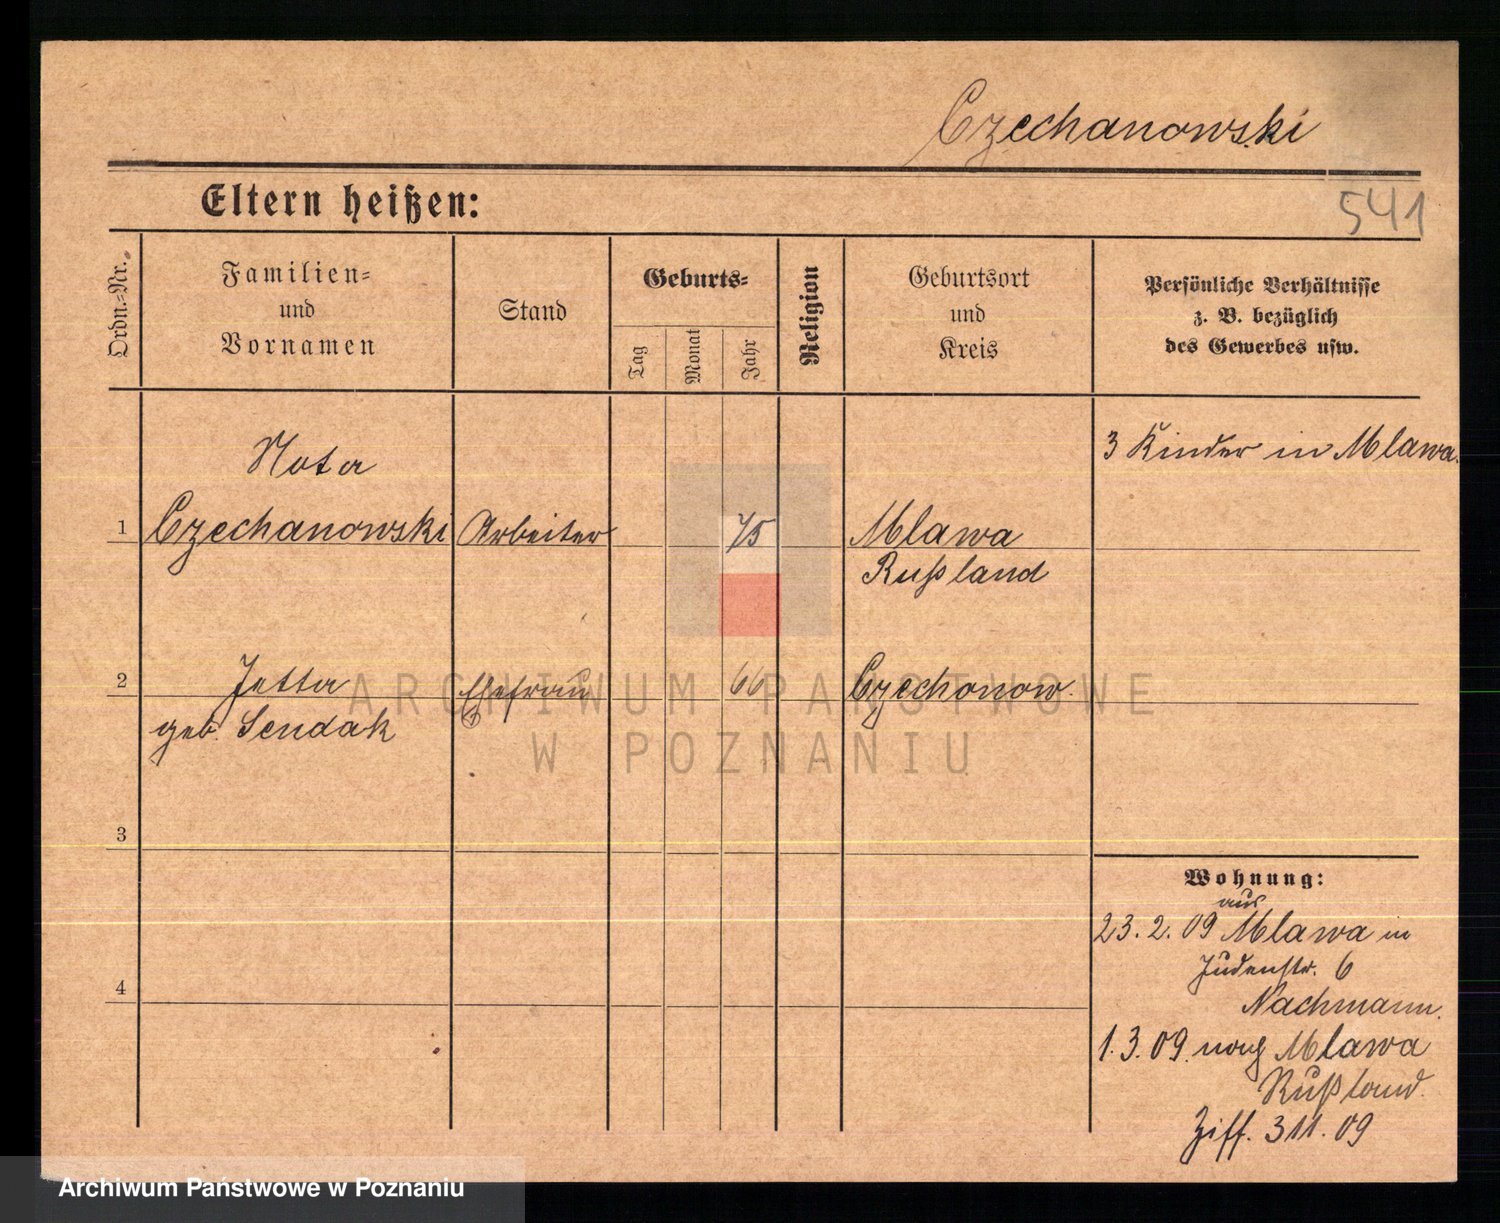 Czechanowski
541
Eltern heißen:
Ordn.=Nr.
Familien=
und
Vornamen
Stand
Geburts=
Tag
Monat
Jahr
Religion
Geburtsort
und
Kreis
Persönliche Verhältnisse
z. B. bezüglich
des Gewerbes usw.
3 Kinder in Mlawa.
Nota
1 Czechanowski Arbeiter 75 Mlawa
Rußland
2 Jetta Ehefrau 66 Czechonow.
geb. Sendak
3
4
Wohnung:
aus
23.2.09 Mlawa in
Judenstr. 6
Nachmann.
1.3.09 nach Mlawa
Rußland.
Ziff. 311.09
ARCHIWUM PAŃSTWOWE
W POZNANIU
Archiwum Państwowe w Poznaniu